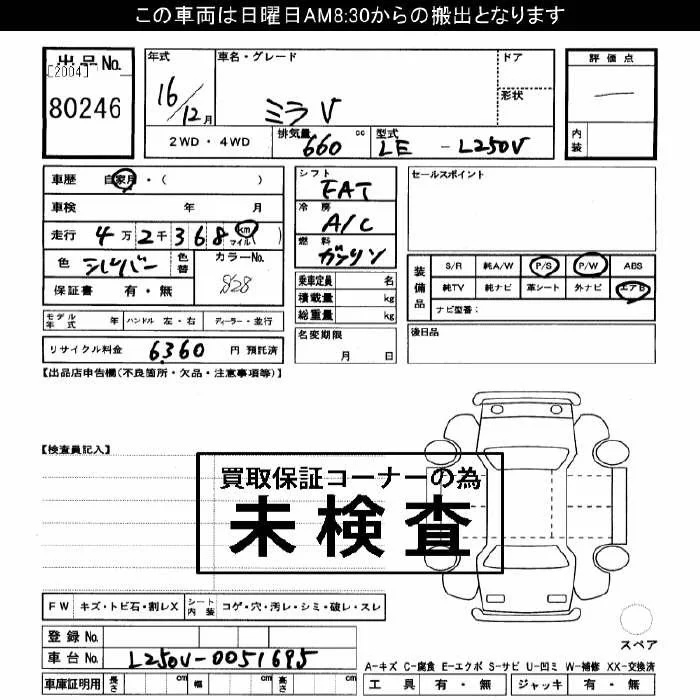 この車両は日曜日AM8:30からの搬出となります
出品No.
[2004]
80246
年式
16/12月
車名・グレード
ミラ V
ドア
形状
評価点
―
内装
2WD・4WD
排気量 660 cc
型式 LE - L250V
車歴 自家用・( )
車検 年 月
走行 4万2千368 km マイル ( )
色 シルバー 色替
カラーNo. S28
保証書 有・無
モデル年式 年 ハンドル 左・右 ディーラー・並行
リサイクル料金 6360 円 預託済
シフト FAT
冷房 A/C
燃料 ガソリン
乗車定員 名
積載量 kg
総重量 kg
名変期限
月 日
セールスポイント
装備品
S/R 純A/W P/S P/W ABS
純TV 純ナビ 革シート 外ナビ エアB
ナビ型番:
後日品
【出品店申告欄(不良箇所・欠品・注意事項等)】
【検査員記入】
買取保証コーナーの為
未検査
FW キズ・トビ石・割レX シート内装 コゲ・穴・汚レ・シミ・破レ・スレ
登録No.
車台No. L250V-0051695
車庫証明用 長さ cm 幅 cm 高さ cm
スペア
A-キズ C-腐食 E-エクボ S-サビ U-凹ミ W-補修 XX-交換済
工具 有・無 ジャッキ 有・無